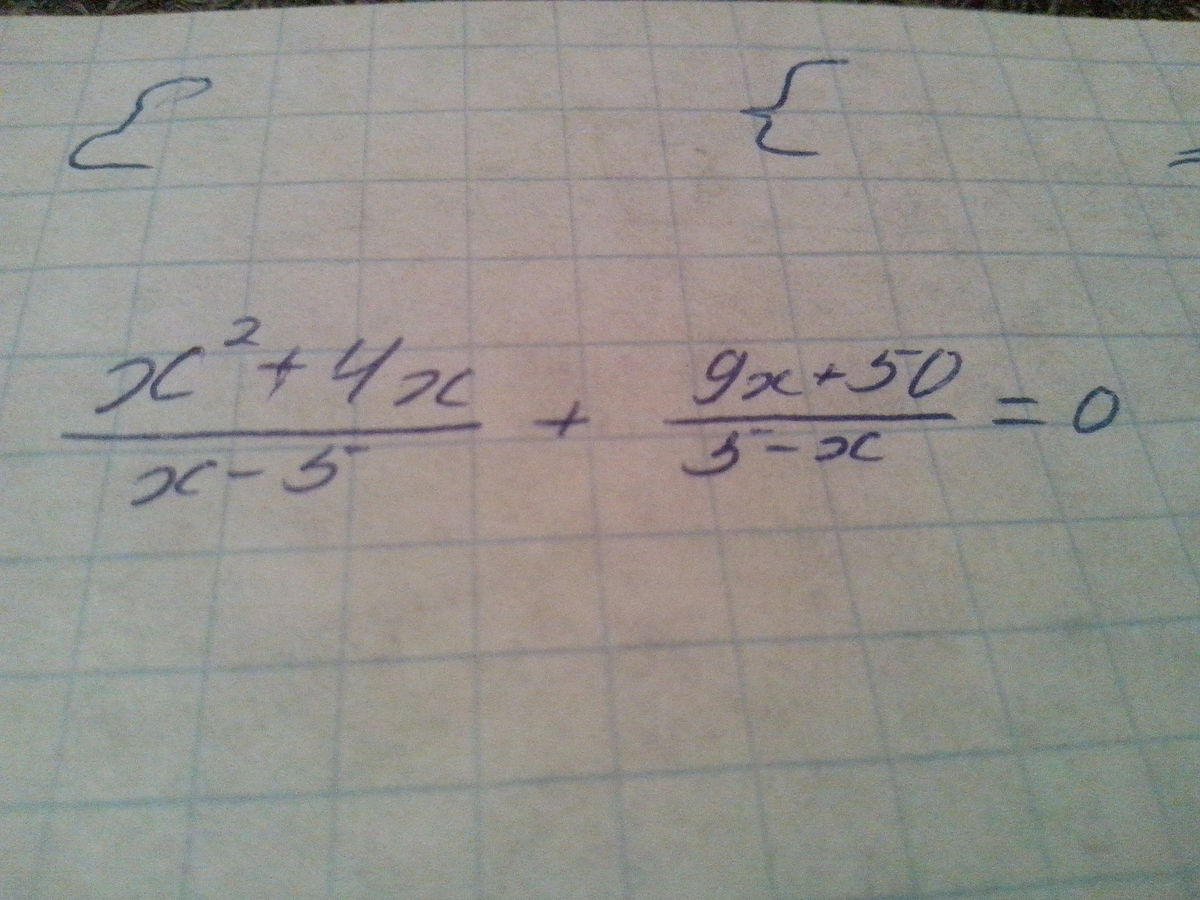 { { =
x² + 4x / x - 5 + 9x + 50 / 5 - x = 0